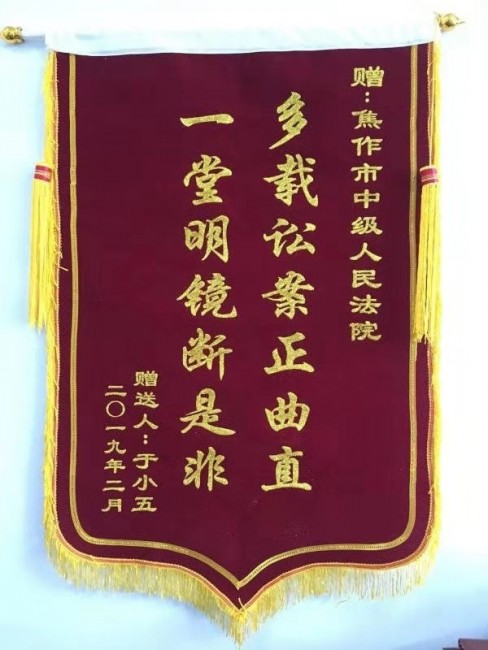 赠：焦作市中级人民法院
多载讼案正曲直
一堂明镜断是非
赠送人：于小五
二〇一九年二月